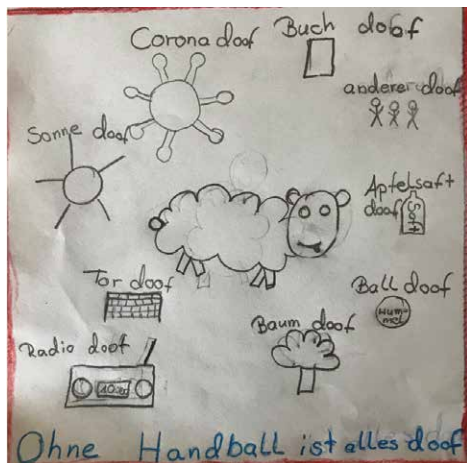 Corona doof
Buch doof
anderer doof
Sonne doof
Apfelsaft
doof
Saft
Tor doof
Ball doof
Hum-
mel
Baum doof
Radio doof
Ohne Handball ist alles doof